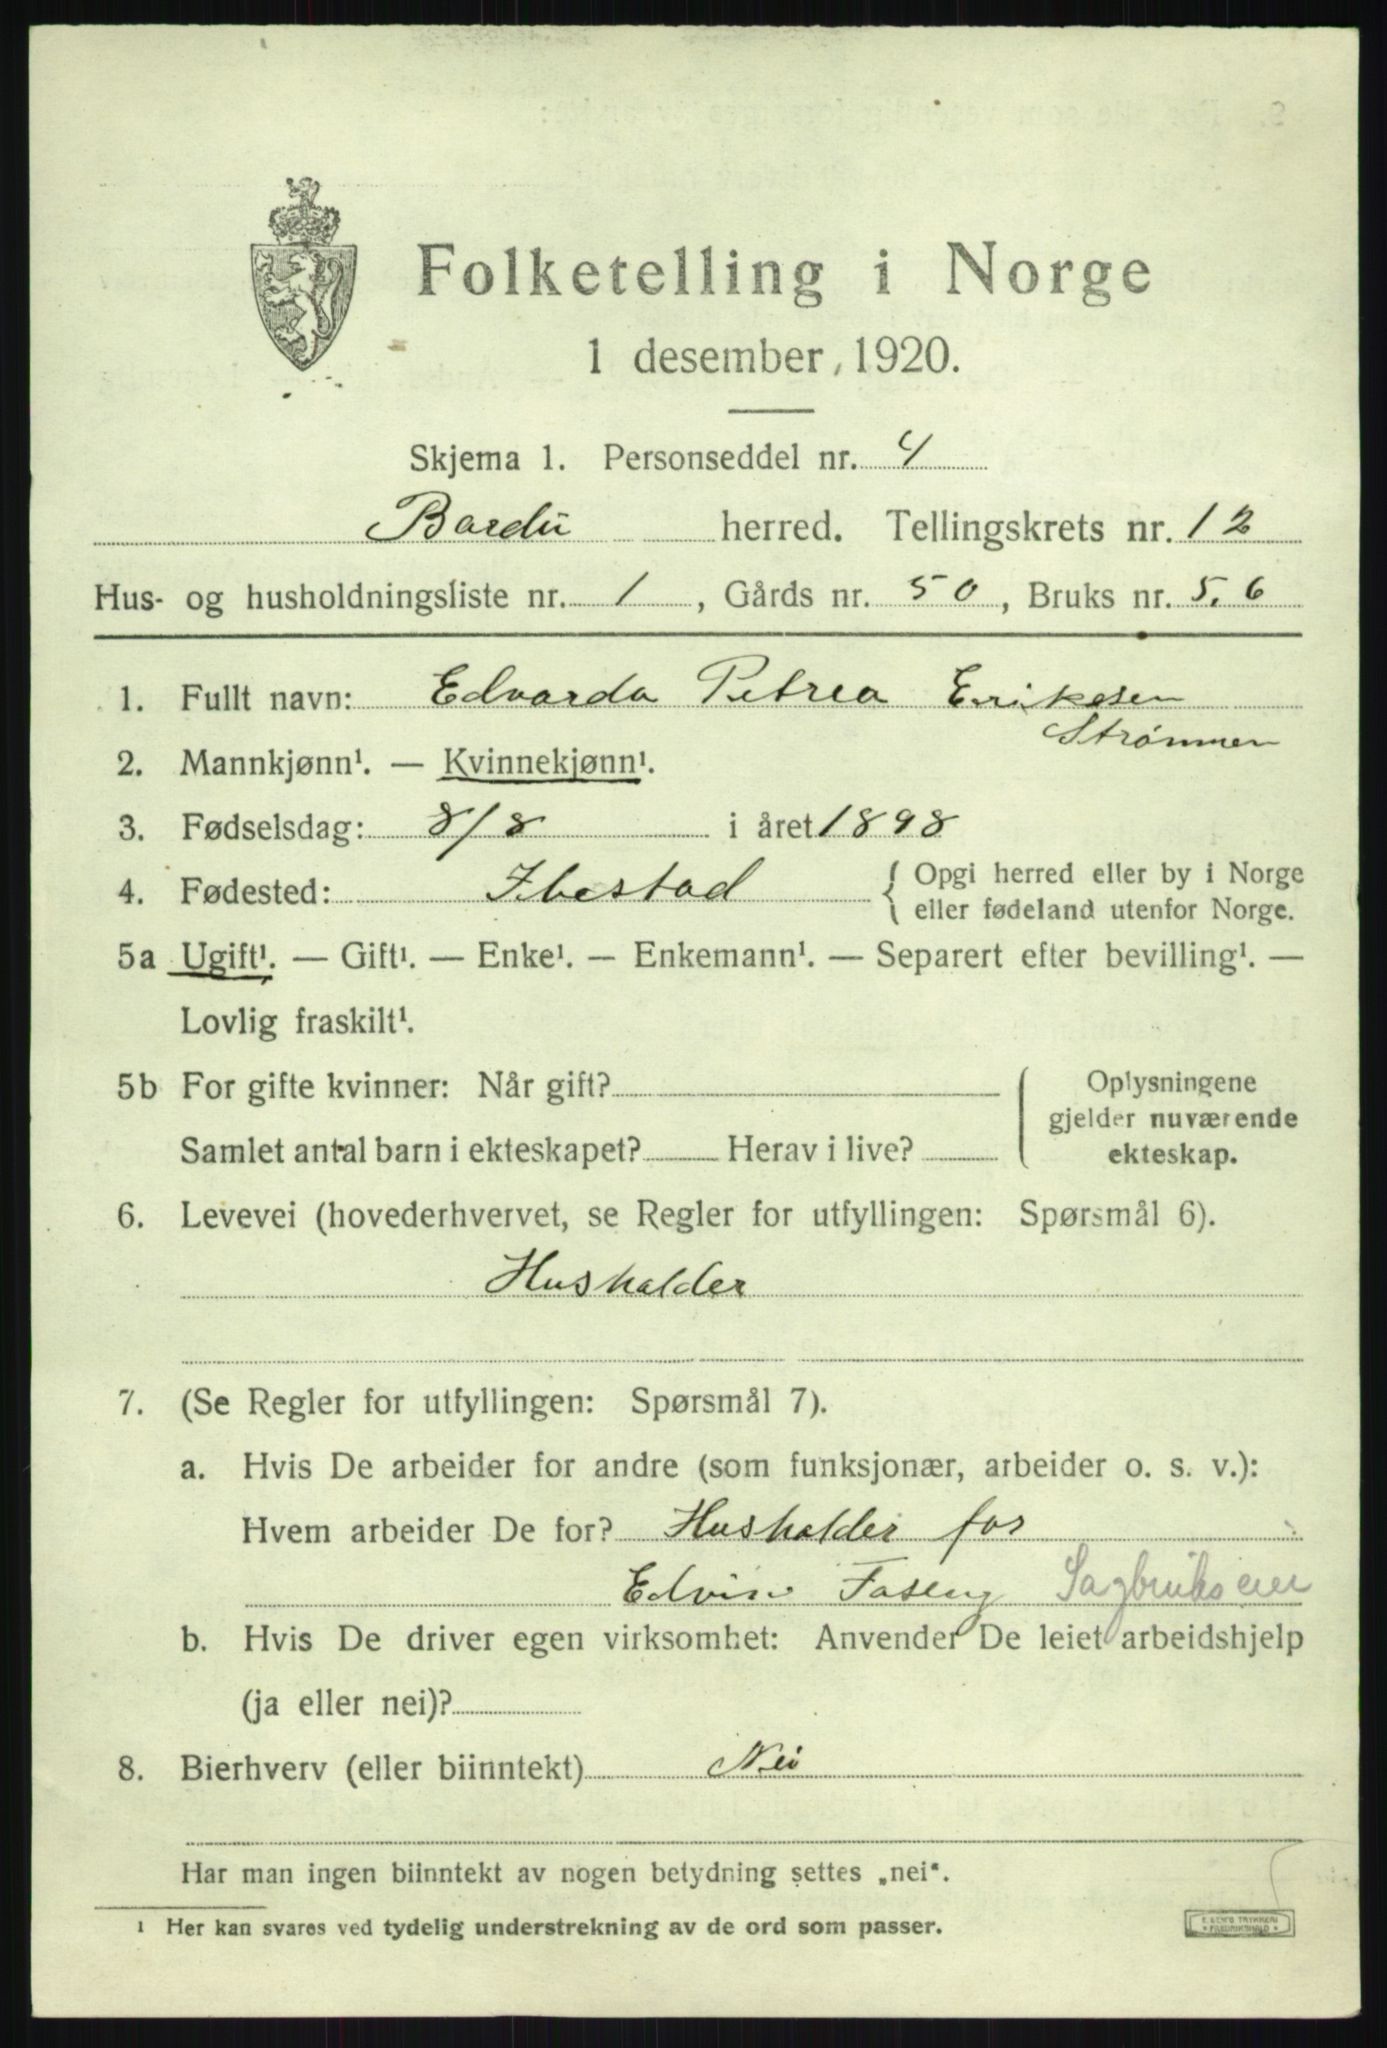 Folketelling i Norge
1 desember 1920.
Skjema 1. Personseddel nr. 4
Bardu herred. Tellingskrets nr. 12
Hus- og husholdningsliste nr. 1, Gårds nr. 50, Bruks nr. 5.6
1. Fullt navn: Edvarda Petrea Eriksen
Strømmen
2. Mannkjønn¹. — Kvinnekjønn¹.
3. Fødselsdag: 8/8 i året 1898
4. Fødested: Ibestad { Opgi herred eller by i Norge
eller fødeland utenfor Norge.
5a Ugift¹. — Gift¹. — Enke¹. — Enkemann¹. — Separert efter bevilling¹. —
Lovlig fraskilt¹.
5b For gifte kvinner: Når gift? Oplysningene
gjelder nuværende
Samlet antal barn i ekteskapet? Herav i live? ekteskap.
6. Levevei (hovederhvervet, se Regler for utfyllingen: Spørsmål 6).
Husholder
7. (Se Regler for utfyllingen: Spørsmål 7).
a. Hvis De arbeider for andre (som funksjonær, arbeider o. s. v.):
Hvem arbeider De for? Husholder for
Edvin Foseng Sagbrukseier
b. Hvis De driver egen virksomhet: Anvender De leiet arbeidshjelp
(ja eller nei)?
8. Bierhverv (eller biinntekt) Nei
Har man ingen biinntekt av nogen betydning settes „nei“.
¹ Her kan svares ved tydelig understrekning av de ord som passer.